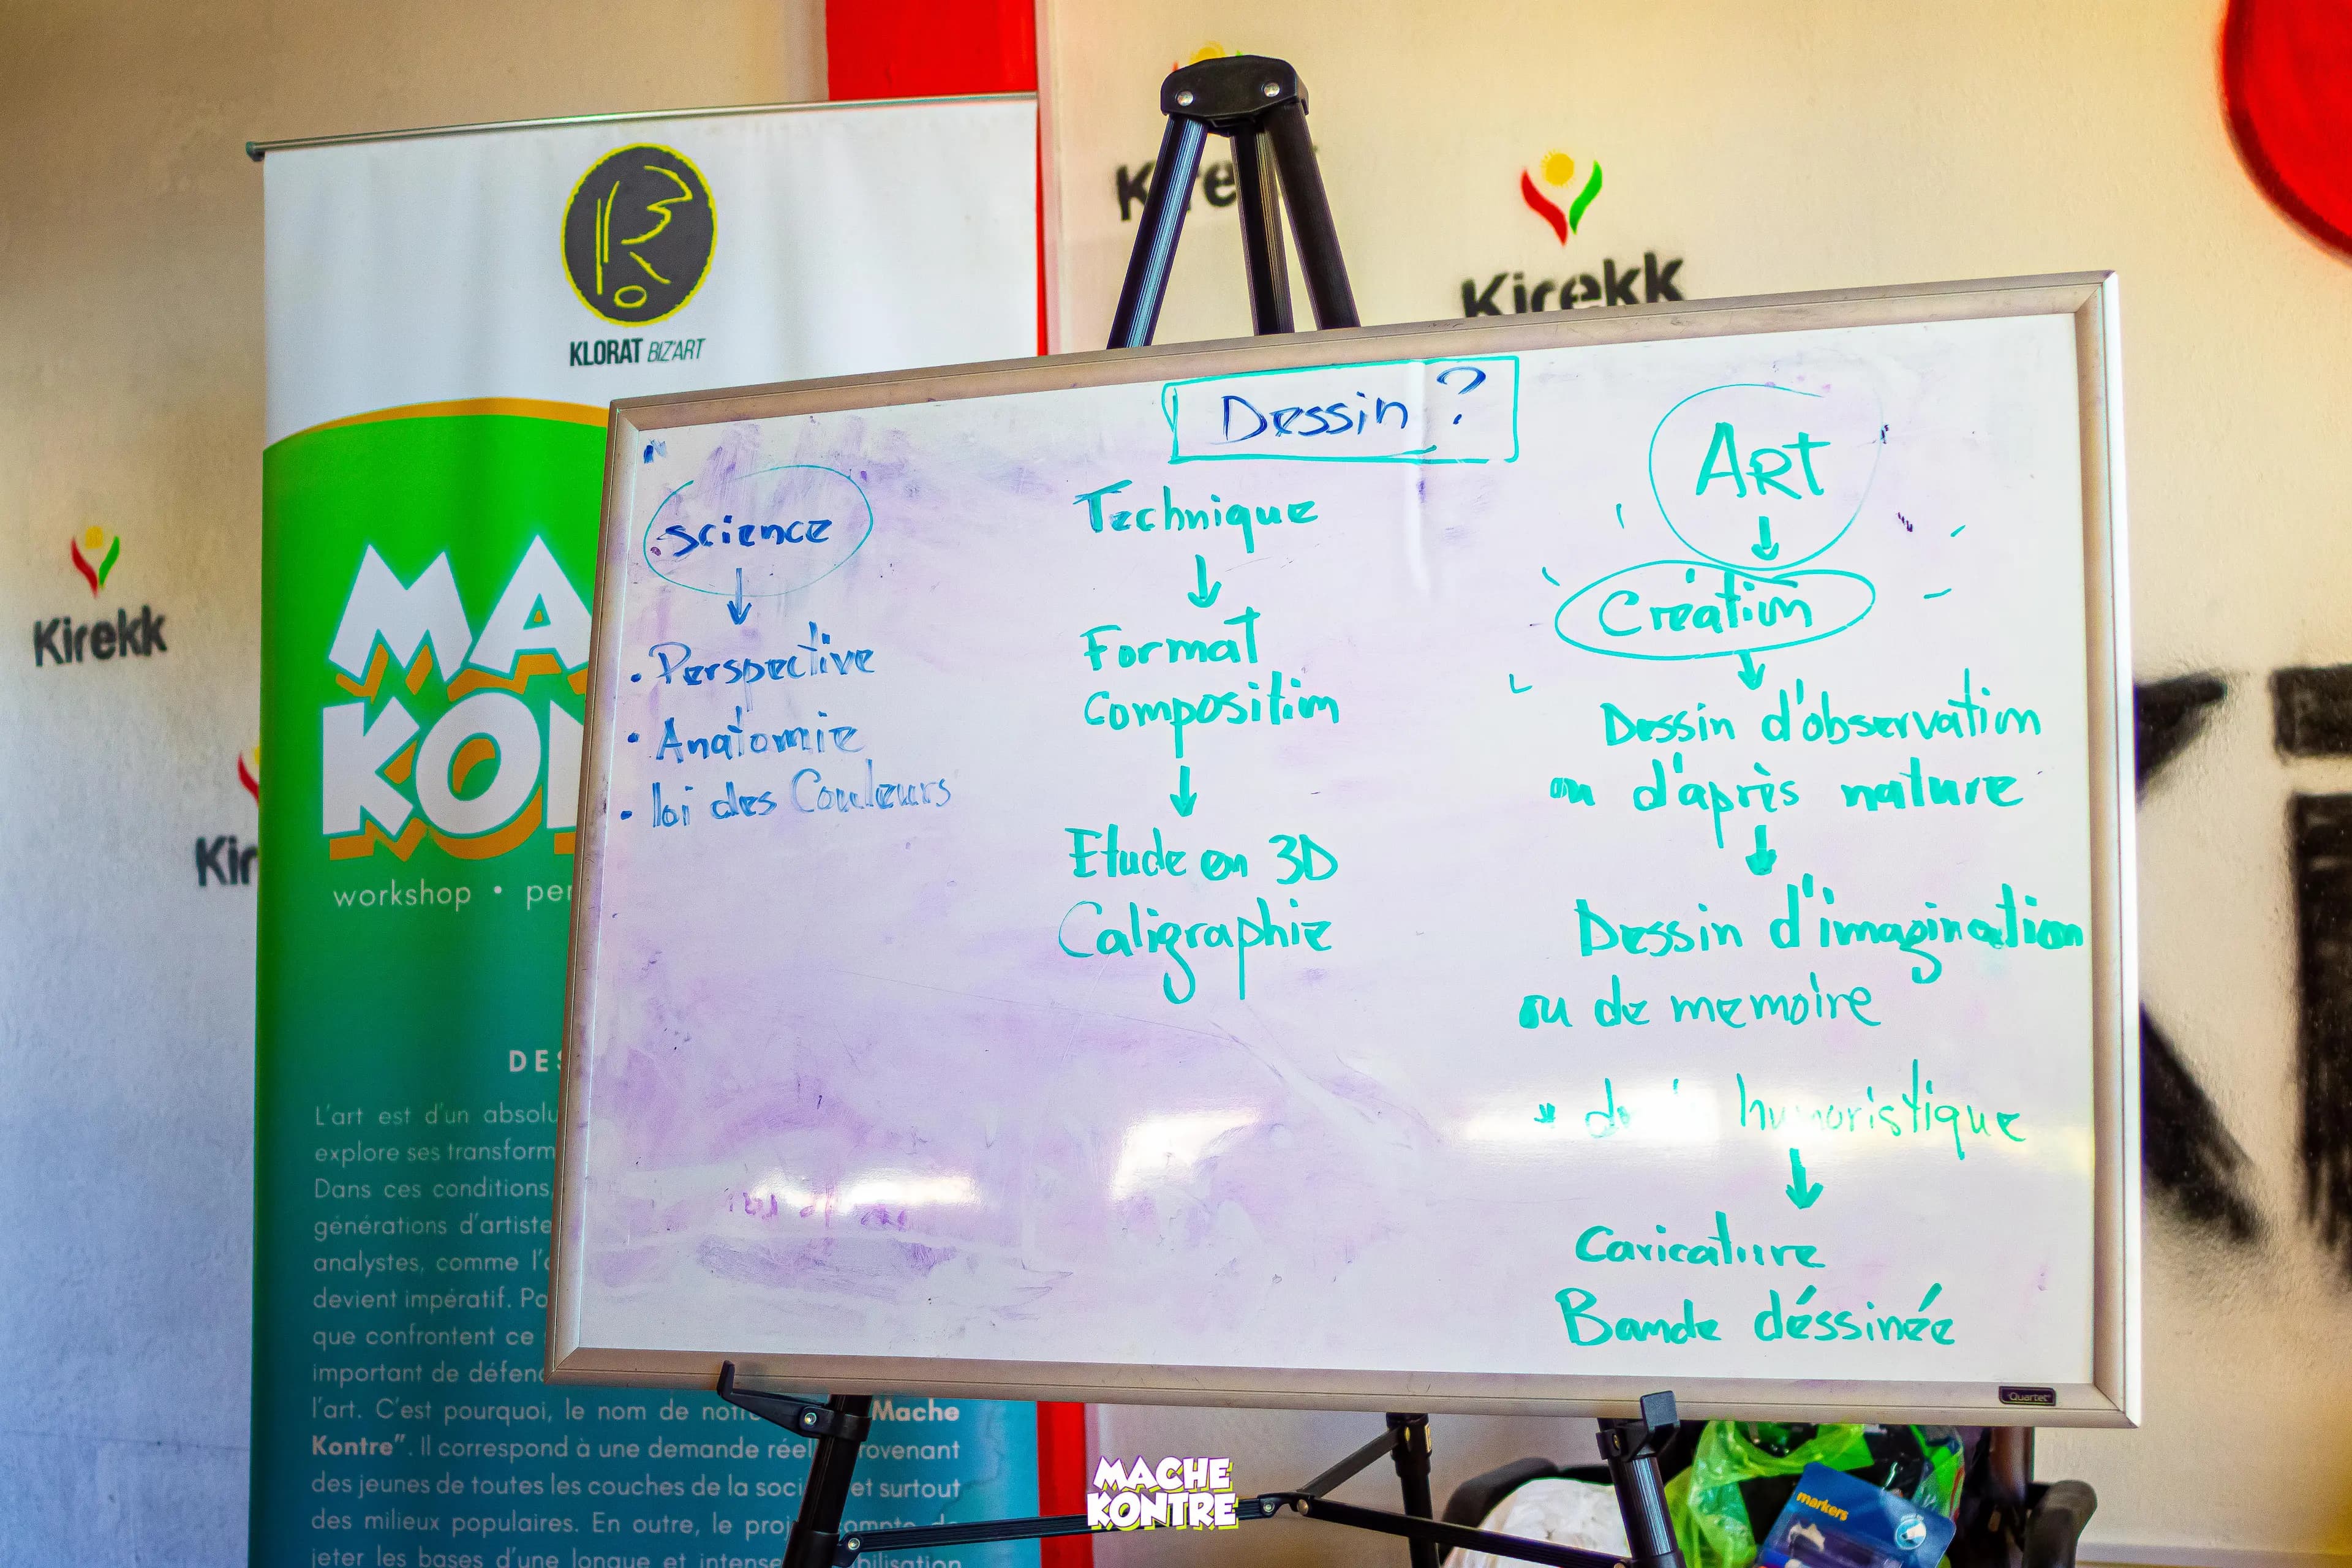 KLORAT BIZ'ART
Kirekk
Kirekk
workshop •
L'art est d'un
explore ses
Dans ces conditions,
générations
analystes, comme
devient impératif.
que confrontent ce
important de
l'art. C'est pourquoi, le nom de Mache
Kontre”. Il correspond à une demande
des jeunes de toutes les couches de la et surtout
des milieux populaires. En outre, le
jeter les bases d'une longue et intense
Dessin ?
science
• Perspective
• Anatomie
• loi des Couleurs
Technique
Format
Composition
Etude en 3D
Caligraphie
ART
Création
Dessin d'observation
ou d'après nature
Dessin d'imagination
ou de memoire
humoristique
Caricature
Bande déssinée
Quartet
MACHE
KONTRE
markers